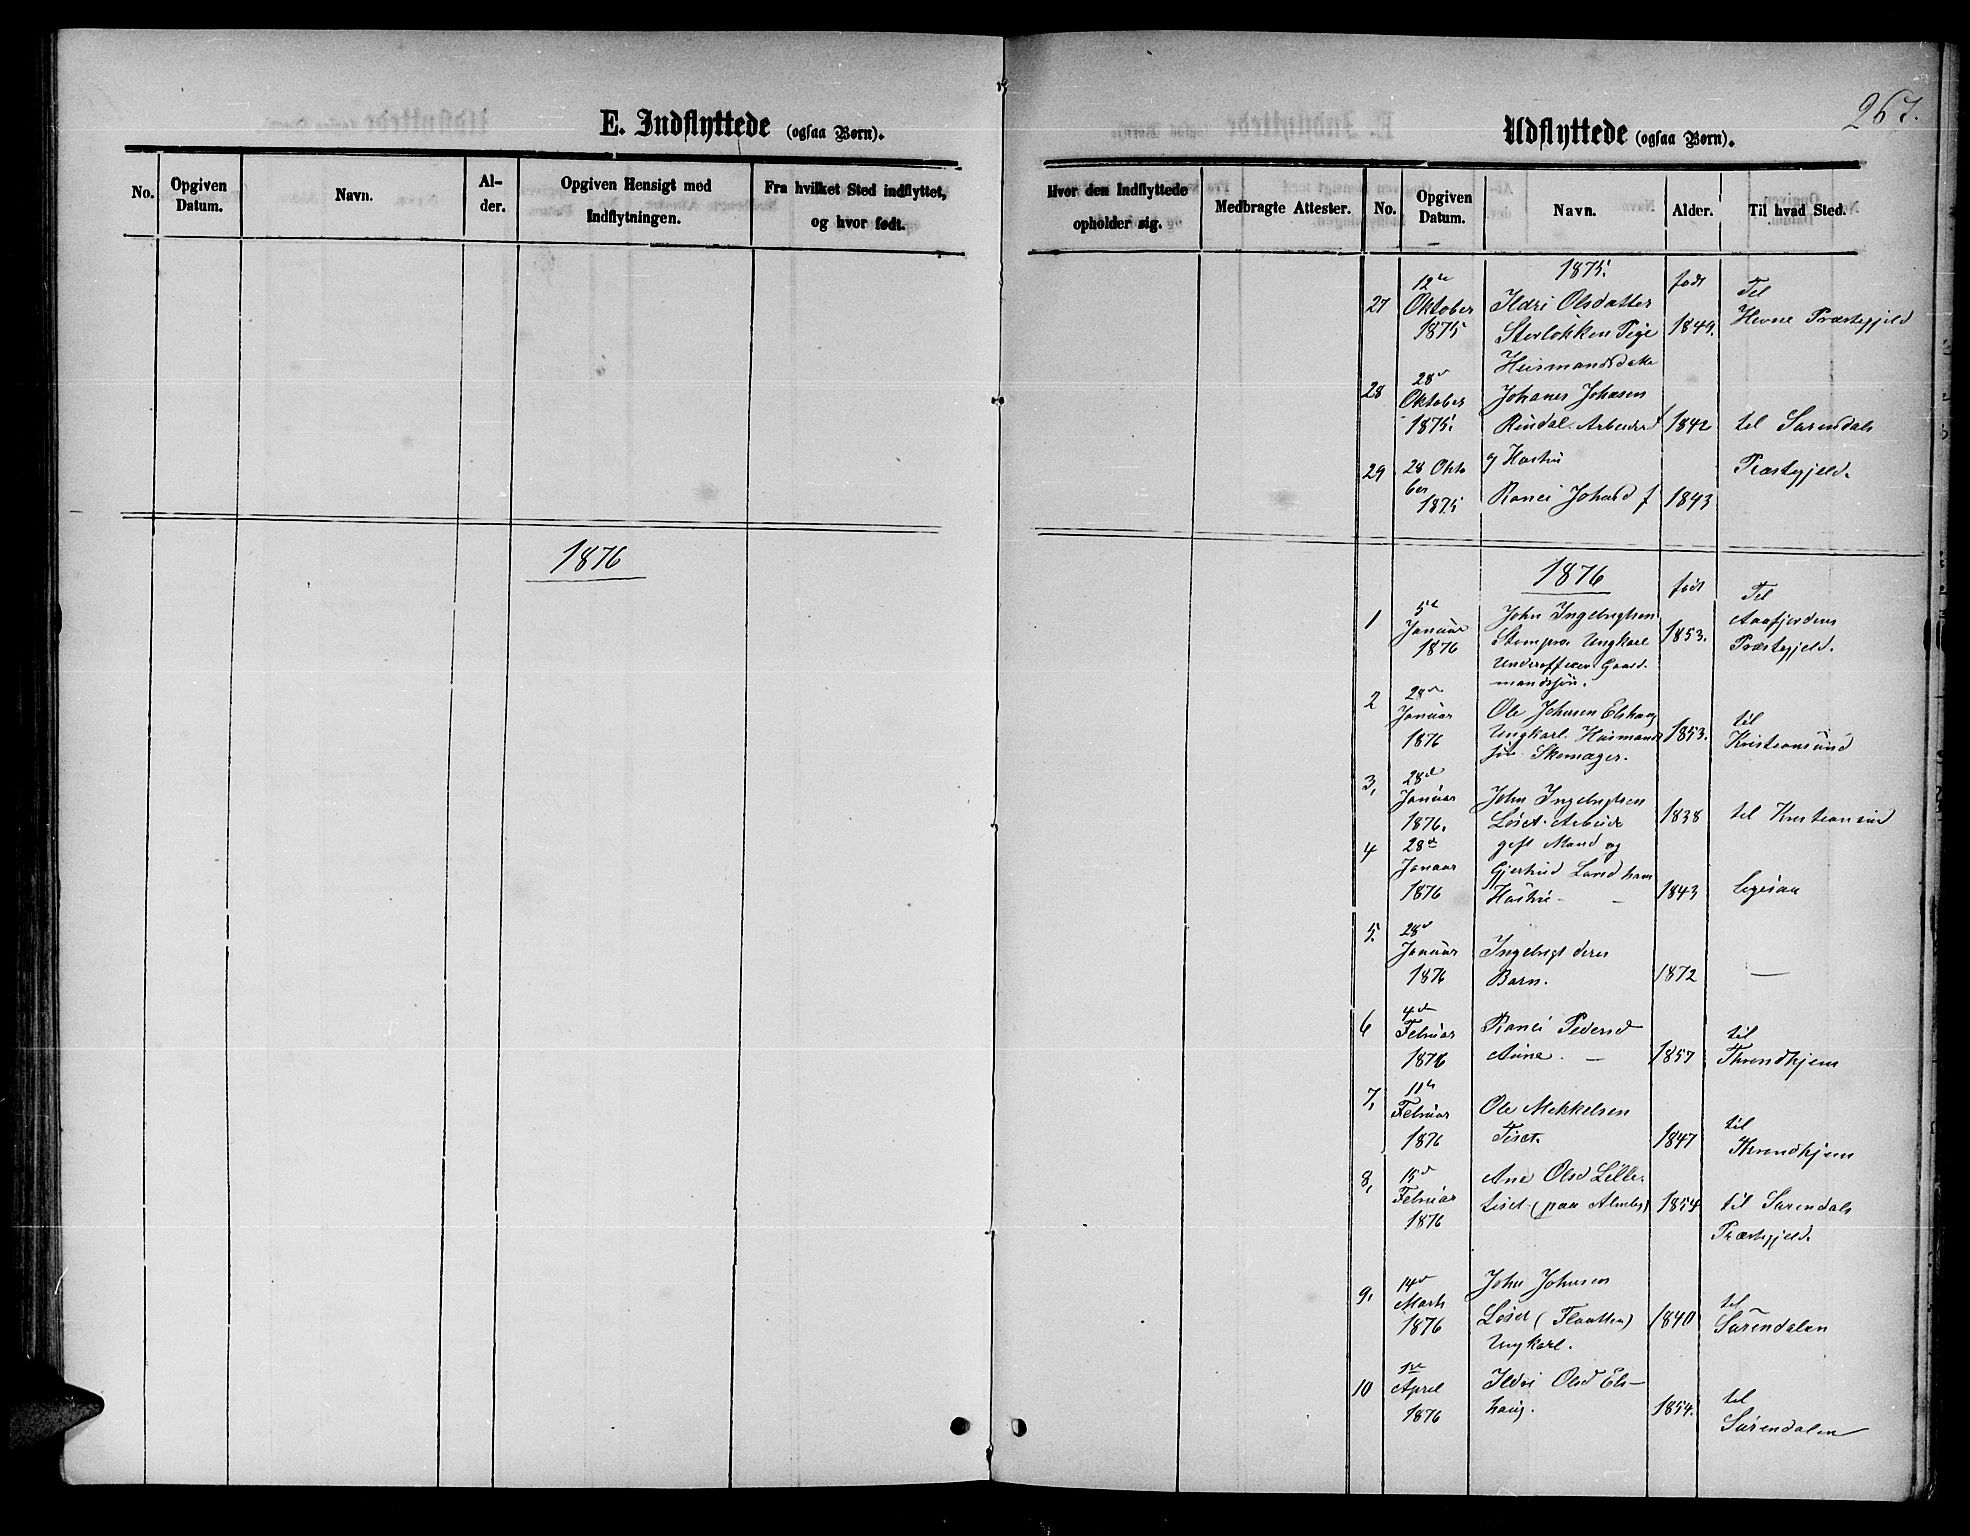 267.
E. Indflyttede (ogsaa Børn).
Udflyttede (ogsaa Børn).
No.
Opgiven Datum.
Navn.
Al-
der.
Opgiven Hensigt med
Indflytningen.
Fra hvilket Sted indflyttet,
og hvor født.
Hvor den Indflyttede
opholder sig.
Medbragte Attester.
No.
Opgiven
Datum.
Navn.
Alder.
Til hvad Sted.
1876
1875.
født
27
12te
Oktober
1875
Ildri Olsdatter
Storløkken Pige
Husmandsdatter
1849.
Til
Hevne Præstegjeld
28
28de
Oktober
1875.
Johanes Johnsen
Rindal Arbeider
1842
til Surendals
29
28 Okto
ber
1875
og Hustru
Ranei Johnsd f
1843
Præstegjeld.
1876
født
1
5te
Januar
1876
John Ingebrigtsen
Ungkarl
Underofficer Gaard-
mandssøn.
1853.
Til
Aafjordens
Præstegjeld.
2
28de
Januar
1876
Ole Johnsen Elshaug
Ungkarl Husmands
søn Skomager.
1853.
til
Kristiansund
3,
28de
Januar
1876.
John Ingebrigtsen
Løset Arbeide
1838
til Kristiansund
4
28de
Januar
1876
gift Mand og
Gjertrud Larsd hans
Hustru -
1843
Ligesaa
5
28de
Januar
1876
Ingebrigt deres
Barn.
1872
—
6
4de
Februar
1876
Ranei Pedersd
Aune. —
1857
til
Throndhjem
7,
11te
Februar
1876
Ole Mekkelsen
Tiset.
1847
til
Throndhjem
8,
15de
Februar
1876
Ane Olsd Lille-
tiset (paa Almberg)
1854
til Surendals
Præstegjeld.
9,
14de
Marts
1876
John Johnsen
Løset (Flaatten)
Ungkarl.
1840
til
Surendalen
10
1ste
April
1876
Ildri Olsd Els-
haug.
1854.
til
Surendalen